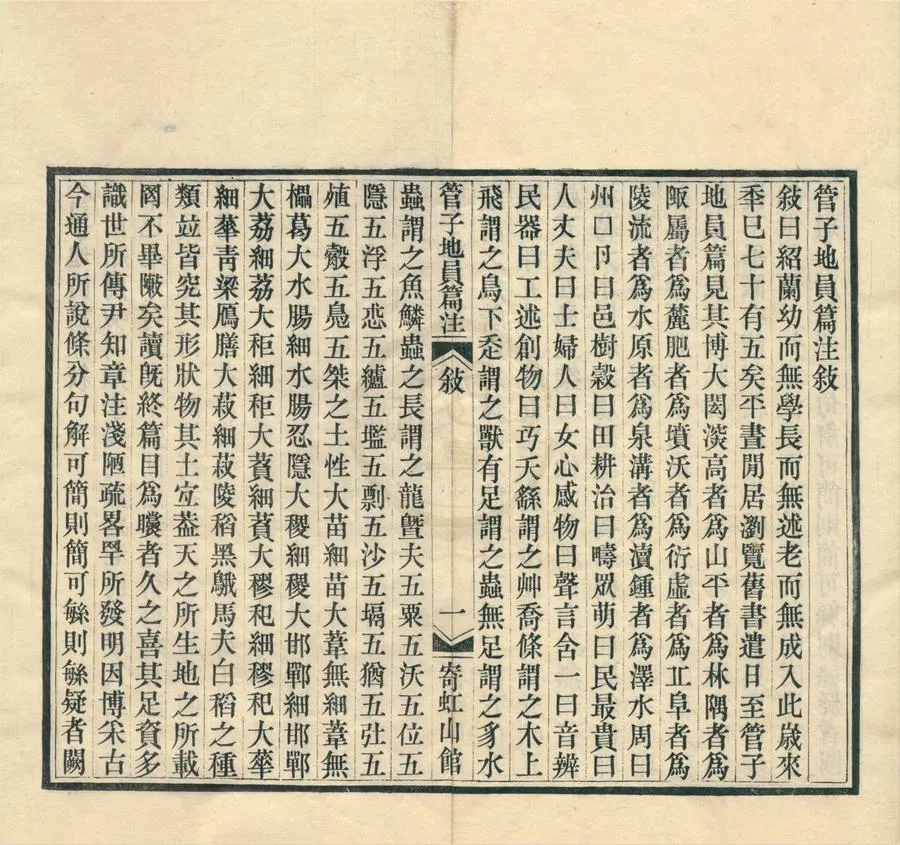 管子地員篇注敍
敍曰紹蘭幼而無學長而無述老而無成入此歲來
秊巳七十有五矣平晝閒居瀏覽舊書遣日至管子
地員篇見其博大閎深高者爲山平者爲林隅者爲
陬屬者爲麓肥者爲墳沃者爲衍虛者爲丠阜者爲
陵流者爲水原者爲泉溝者爲瀆鍾者爲澤水周曰
州囗卪曰邑樹穀曰田耕治曰疇眾萌曰民最貴曰
人丈夫曰士婦人曰女心感物曰聲言含一曰音辨
民器曰工述創物曰巧夭繇謂之艸喬條謂之木上
飛謂之鳥下赱謂之獸有足謂之蟲無足謂之豸水
管子地員篇注 敍 一 寄虹山館
蟲謂之魚鱗蟲之長謂之龍曁夫五粟五沃五位五
隱五浮五恋五纑五壏五剽五沙五塥五猶五弞五
殖五觳五鳧五桀之土性大苗細苗大葦無細葦無
櫑葛大水腸細水腸忍隱大稷細稷大邯鄲細邯鄲
大荔細荔大秬細秬大蕡細蕡大穋秜細穋秜大華
細華青粱鴈膳大菽細菽陵稻黑鵝馬夫白稻之種
類竝皆究其形狀物其土宜葢天之所生地之所載
罔不畢敶矣讀旣終篇目爲矎者久之喜其足資多
識世所傳尹知章注淺陋疏畧罕所發明因博采古
今通人所說條分句解可簡則簡可緐則緐疑者闕